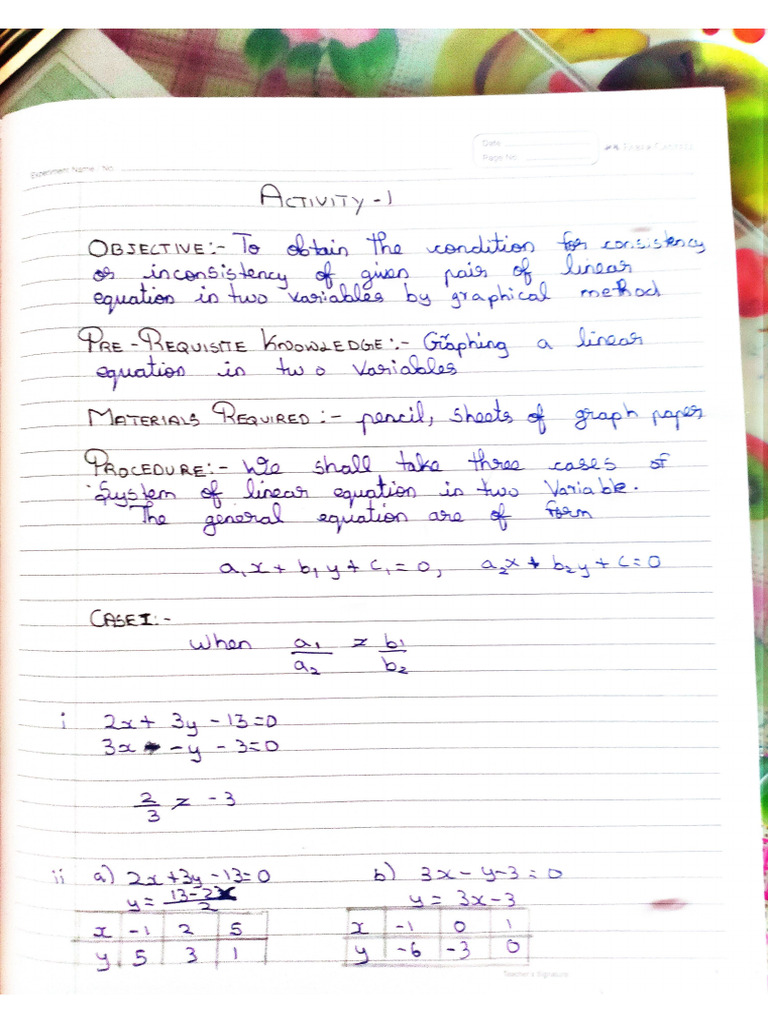 Date
Page No.
FABER-CASTELL
Experiment Name / No.
ACTIVITY-1
OBJECTIVE:- To obtain the condition for consistency
or inconsistency of given pair of linear
equation in two variables by graphical method
PRE-REQUISITE KNOWLEDGE:- Graphing a linear
equation in two variables
MATERIALS REQUIRED:- pencil, sheets of graph paper
PROCEDURE:- We shall take three cases of
System of linear equation in two Variable.
The general equation are of form
a₁x + b₁y + c₁ = 0, a₂x + b₂y + c = 0
CASE I:-
When a₁/a₂ ≠ b₁/b₂
i 2x + 3y - 13 = 0
3x - y - 3 = 0
2/3 ≠ -3
ii a) 2x + 3y - 13 = 0 b) 3x - y - 3 = 0
y = 13-2x/2 y = 3x - 3
x -1 2 5 x -1 0 1
y 5 3 1 y -6 -3 0
Teacher's Signature